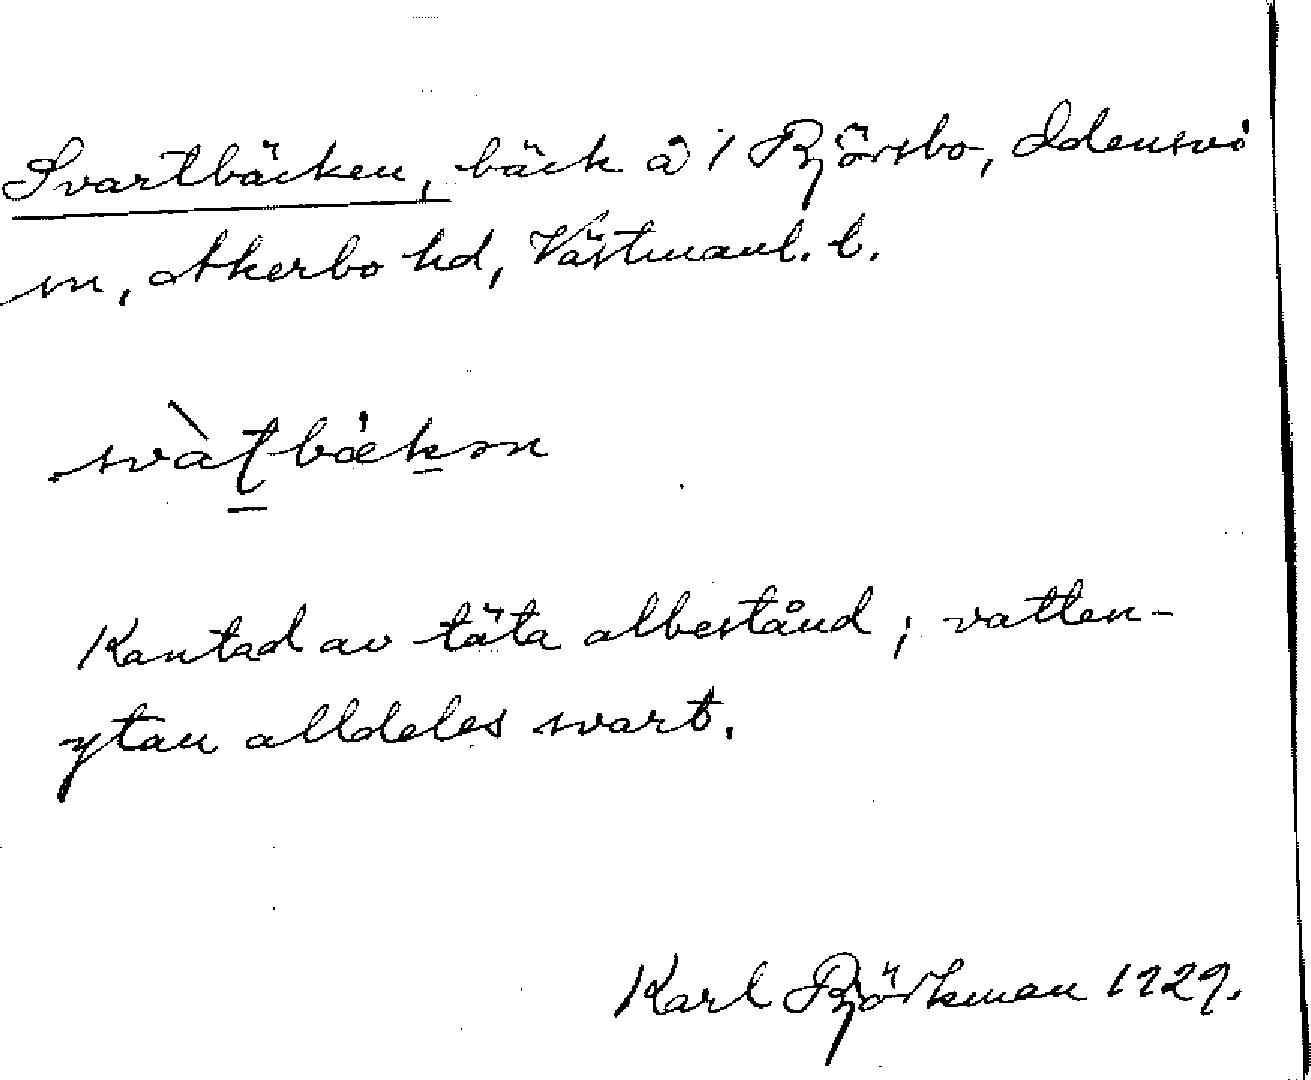 Svartbäcken, bäck å 1 Björsbo, Odensvi
sn, Åkerbo hd, Västmanl. l.
svàt̠bäck̠ən
Kantad av täta albestånd; vatten-
ytan alldeles svart.
Karl Björkman 1929.